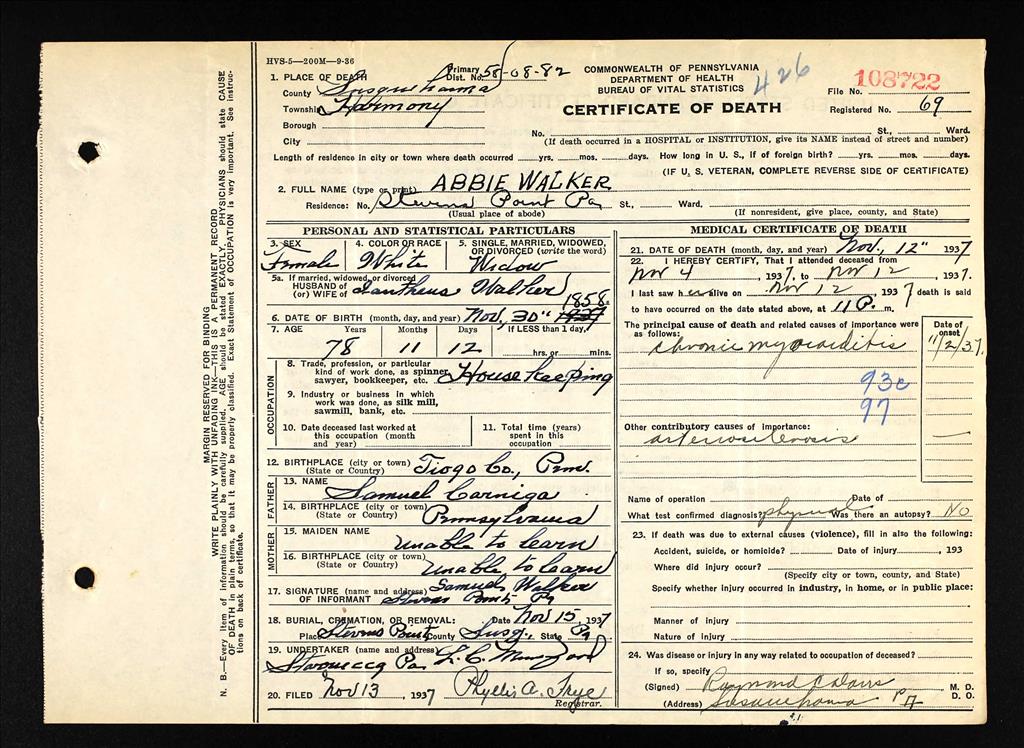 HVS-5—200M—9-36
Primary Dist. No. 58-08-82
COMMONWEALTH OF PENNSYLVANIA
DEPARTMENT OF HEALTH
BUREAU OF VITAL STATISTICS
426
CERTIFICATE OF DEATH
File No. 108722
Registered No. 69
1. PLACE OF DEATH
County Susquehanna
Township Harmony
Borough
City
No. St., Ward.
(If death occurred in a HOSPITAL or INSTITUTION, give its NAME instead of street and number)
Length of residence in city or town where death occurred yrs. mos. days. How long in U. S., if of foreign birth? yrs. mos. days.
(IF U. S. VETERAN, COMPLETE REVERSE SIDE OF CERTIFICATE)
2. FULL NAME (type or print) ABBIE WALKER
Residence: No. Stevens Point Pa St., Ward.
(Usual place of abode) (If nonresident, give place, county, and State)
PERSONAL AND STATISTICAL PARTICULARS
3. SEX Female
4. COLOR OR RACE White
5. SINGLE, MARRIED, WIDOWED, OR DIVORCED (write the word) Widow
5a. If married, widowed, or divorced
HUSBAND OF
(or) WIFE OF Iantheus Walker
6. DATE OF BIRTH (month, day, and year) Nov, 30" 1858
7. AGE Years Months Days If LESS than 1 day,
78 11 12 hrs. or mins.
OCCUPATION
8. Trade, profession, or particular kind of work done, as spinner, sawyer, bookkeeper, etc. House keeping
9. Industry or business in which work was done, as silk mill, sawmill, bank, etc.
10. Date deceased last worked at this occupation (month and year)
11. Total time (years) spent in this occupation
12. BIRTHPLACE (city or town) Tioga Co., Penn.
(State or Country)
FATHER
13. NAME Samuel Carniga
14. BIRTHPLACE (city or town) Pennsylvania
(State or Country)
MOTHER
15. MAIDEN NAME Unable to learn
16. BIRTHPLACE (city or town) Unable to learn
(State or Country)
17. SIGNATURE (name and address) OF INFORMANT Samuel Walker
Stevens Point, Pa
18. BURIAL, CREMATION, OR REMOVAL: Date Nov 15 1937
Place Stevens Point County Susq. State Pa
19. UNDERTAKER (name and address) L. C.
Starrucca Pa
20. FILED Nov 13, 1937 Phyllis A. Frye
Registrar.
MEDICAL CERTIFICATE OF DEATH
21. DATE OF DEATH (month, day, and year) Nov, 12" 1937
22. I HEREBY CERTIFY, That I attended deceased from
Nov 4, 1937, to Nov 12, 1937.
I last saw her alive on Nov 12 1937 death is said
to have occurred on the date stated above, at 11 P. m.
The principal cause of death and related causes of importance were as follows:
Date of onset
chronic myocarditis 11/2/37.
93c
97
Other contributory causes of importance:
arteriosclerosis
Name of operation Date of
What test confirmed diagnosis? physical Was there an autopsy? No
23. If death was due to external causes (violence), fill in also the following:
Accident, suicide, or homicide? Date of injury, 193
Where did injury occur?
(Specify city or town, county, and State)
Specify whether injury occurred in industry, in home, or in public place:
Manner of injury
Nature of injury
24. Was disease or injury in any way related to occupation of deceased?
If so, specify
(Signed) Raymond C Davis M. D.
D. O.
(Address) Susquehanna Pa
MARGIN RESERVED FOR BINDING
WRITE PLAINLY WITH UNFADING INK—THIS IS A PERMANENT RECORD
N. B.—Every item of information should be carefully supplied. AGE should be stated EXACTLY. PHYSICIANS should state CAUSE OF DEATH in plain terms, so that it may be properly classified. Exact Statement of OCCUPATION is very important. See instructions on back of certificate.